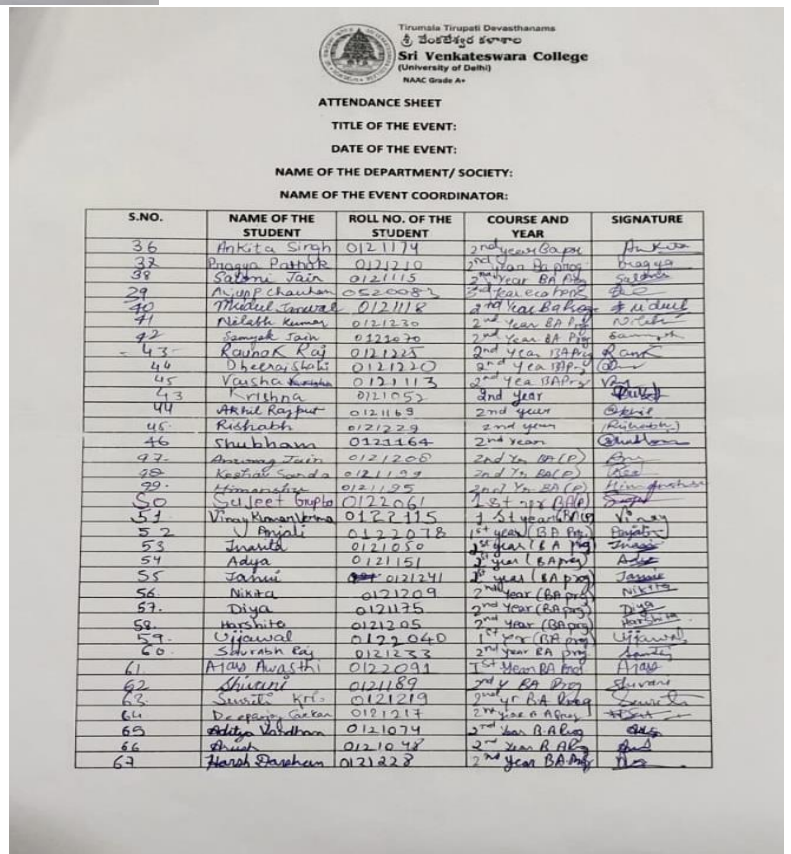 Tirumala Tirupati Devasthanams
శ్రీ వేంకటేశ్వర కళాశాల
Sri Venkateswara College
(University of Delhi)
NAAC Grade A+
ATTENDANCE SHEET
TITLE OF THE EVENT:
DATE OF THE EVENT:
NAME OF THE DEPARTMENT/ SOCIETY:
NAME OF THE EVENT COORDINATOR:
S.NO. NAME OF THE STUDENT ROLL NO. OF THE STUDENT COURSE AND YEAR SIGNATURE
36 Ankita Singh 0121174 2nd year Ba pr Ankita
37 Pragya Pathak 0121210 2nd Year Ba prog Pragya
38 Saloni Jain 0121115 2nd Year BA Prog Saloni
39 Chauhan 0520083 3rd Year eco hons
40 Mridul 0121118 2nd Year Ba Prog Mridul
41 Nilabh Kumar 0121230 2nd Year BA Prg Nilabh
42 Samyak Jain 0121070 2nd Year BA Prg
- 43 - Raunak Raj 0121225 2nd Year BA Prg
44 Dheeraj 0121220 2nd Yea
45 Varsha 0121113 2nd Yea BA Prg
43 Krishna 0121052 2nd year
44 Akhil Rajput 0121169 2nd year Akhil
45. Rishabh 0121229 2nd year (Rishabh)
46 Shubham 0121164 2nd year
97. Anurag Jain 0121206 2nd Yr BA(P)
98 Keshav 2nd Yr BA(P)
99. Himanshu 0121195 2nd Yr BA(P)
50 Sujeet Gupta 0122061 1st yr BA(P)
51 Vinay Kumar Verma 0122115 1st year (BA Vinay
52 Anjali 0122078 1st year (BA Prg) Anjali
53 0121050 year (BA prg)
54 Adya 0121151 year (BA prog)
55 Janvi 0121241 year (BA prog)
56. Nikita 0121209 2nd Year (BA prg) Nikita
57. Diya 0121175 2nd Year (BA prg) Diya
58. Harshita 0121205 2nd Year (BA prg) Harshita
59. Ujjawal 0122040 1st Yr (BA prg) Ujjawal
60. Saurabh Raj 0121233 2nd year BA prog
61. Ajay Awasthi 0122091 1st Year BA Prog Ajay
62 Shivani 0121189 2nd Y BA Prog Shivani
63. 0121219 2nd yr BA Prog
64 0121217 2nd year
65 Aditya Vardhan 0121074 2nd Year B.A Prog
66 Arush 0121048 2nd Year
67 Harsh Darshan 0121228 2nd Year BA Prog